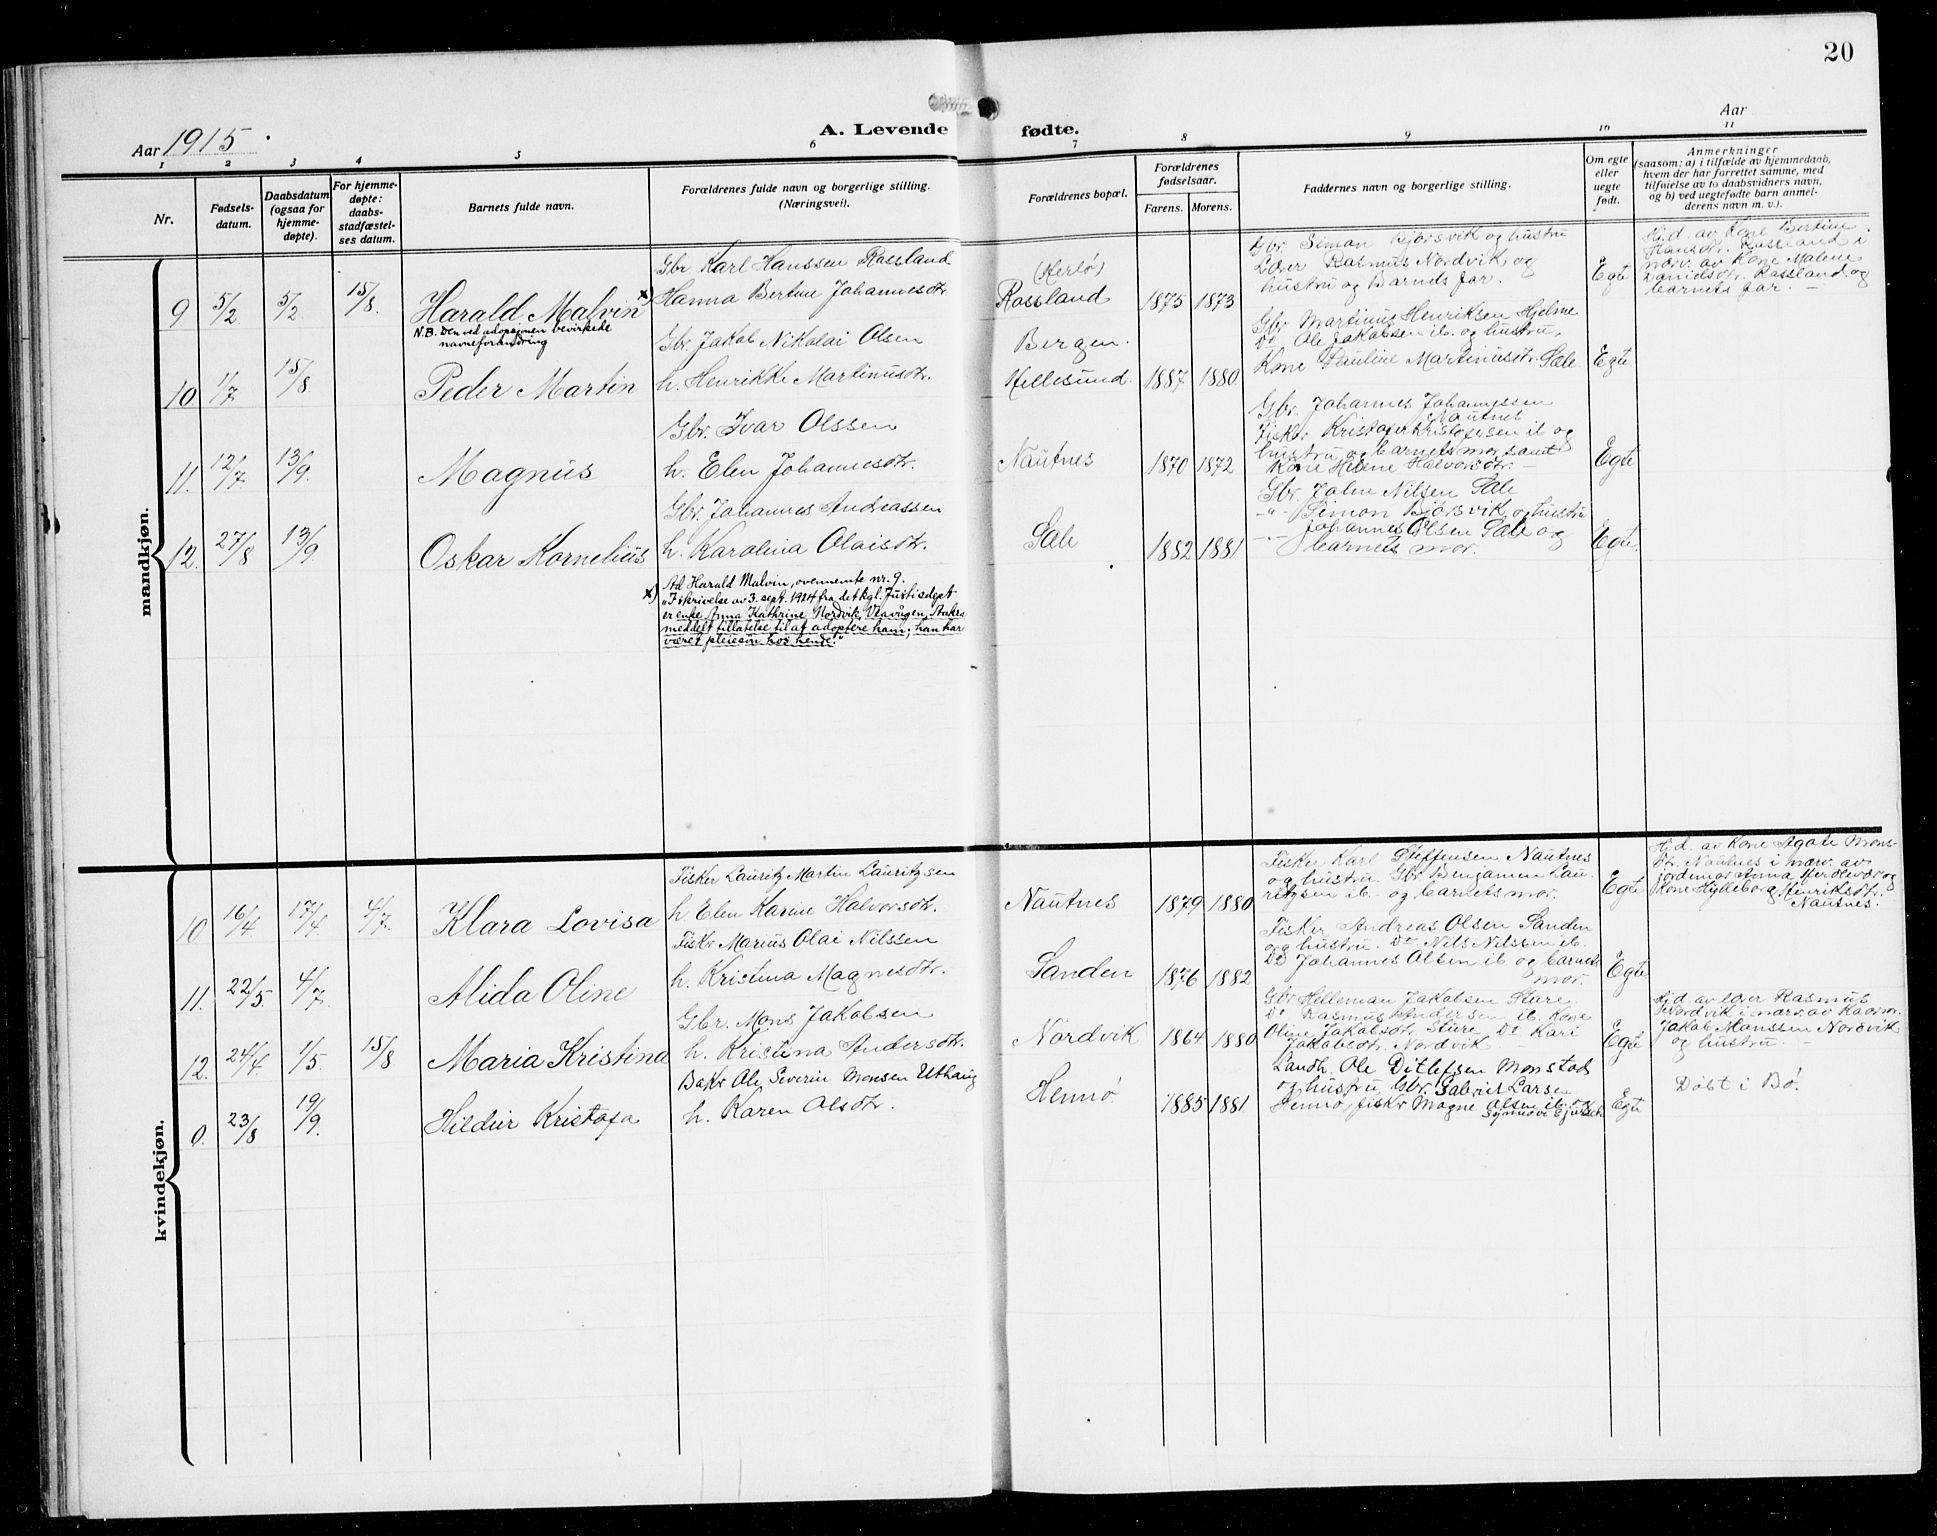 20
Aar 1915.
A. Levende fødte.
Aar
1 2 3 4 5 6 7 8 9 10 11
Nr.
Fødsels-
datum.
Daabsdatum
(ogsaa for
hjemme-
døpte).
For hjemme-
døpte:
daabs-
stadfæstel-
ses datum.
Barnets fulde navn.
Forældrenes fulde navn og borgerlige stilling.
(Næringsvei).
Forældrenes bopæl.
Forældrenes
fødselsaar.
Farens. Morens.
Faddernes navn og borgerlige stilling.
Om egte
eller
uegte
født.
Anmerkninger
(saasom: a) i tilfælde av hjemmedaab,
hvem der har forrettet samme, med
tilføielse av to daabsvidners navn,
og b) ved uegtefødte barn anmel-
derens navn m. v.).
mandkjøn.
9 5/2 5/2 15/8 Harald Malvin x)
N.B. Den ved adopsjonen bevirkede
navneforandring
Gbr Karl Hanssen Rossland
Hanna Bertine Johannesdtr.
(Herlø)
Rossland 1875 1873
Gbr Simon Bjørsvik og hustru
Lærer Rasmus Nordvik og
hustru og Barnets far.
Egte
Hj.d. av Kone Bertine
Hansdtr. Rossland i
nærv. av Kone Malene
Danidsdtr. Rossland og
barnets far. –
10. 1/7 15/8 Peder Martin
Gbr. Jakob Nikolai Olsen
h. Henrikke Martinusdtr.
Bergen.
Hellesund. 1887. 1880.
Gbr. Martinus Henriksen Hjelme
Dt Ole Jakobsen ib. og hustru,
Kone Pauline Martinusdtr. Sæle
Egte
11. 12/7. 13/9. Magnus
Gbr. Ivar Olssen
h. Elen Johannesdtr.
Nautnes 1870 1872
Gbr. Johannes Johannessen
Nautnes
Fisker Kristofer Kristofersen ib og
hustru og barnets mor, samt
Kone Helene Halvorsdtr. –
Egte
12. 27/8 13/9. Oskar Kornelius
Gbr. Johannes Andreassen
h. Karolina Olaisdtr.
Sæle 1882 1881
Gbr. John Nilsen Sæle
-"- Simon Bjørsvik og hustru
-"- Johannes Olsen Sæle og
barnets mor.
Egte.
x) Ad Harald Malvin, ovennemte nr. 9.
"I skrivelse av 3. sept. 1924 fra det kgl. Justisdept
er enke Anna Kathrine Nordvik, Veavågen, Aakra
meddelt tillatelse til at adoptere ham; han har
været pleiesøn hos hende."
kvindekjøn.
10 16/4 17/4 4/7. Klara Lovisa
Fisker Lauritz Martin Lauritzsen
h Elen Karine Halvorsdtr.
Nautnes 1879 1880
Fisker Karl Steffensen Nautnes
og hustru. Gbr Benjamen Lau-
ritzsen ib. og barnets mor.
Egte
Hj.d. av Kone Agate Mons-
dtr. Nautnes i nærv. av
jordemor Anna Herdlevær og
Kone Hylleborg Henriksdtr.
Nautnes.
11. 22/5. 4/7. Alida Oline
Fiskr Marius Olai Nilssen
h. Kristina Magnesdtr.
Sanden 1876 1882
Fisker Andreas Olsen Sanden
og hustru. Dt Nils Nilssen ib.
Dt Johannes Olsen ib og barnets
mor.
Egte
12. 24/4 1/5. 15/8 Maria Kristina
Gbr. Mons Jakobsen
h. Kristina Andersdtr.
Nordvik 1864 1880
Gbr Helleman Jakobsen Sture
Dt Rasmus Andersen ib. Kone
Oline Jakobsdtr. Sture Dt Kari
Jakobsdtr. Nordvik. –
Egte
Hj.d. av lærer Rasmus
Nordvik i nærv. av Kaarm.
Jakob Monssen Nordvik
og hustru. –
0. 23/8 19/9. Hildur Kristofa
Bakr Ole Severin Monsen Uthaug
h. Karen Olsdtr.
Hennø 1885 1881
Landh. Ole Ditlefsen Monstad
og hustru, Gbr. Gabriel Larsen
Hennø, fiskr Magne Olsen ib. og
Synnøve
Egte
Døbt i Bø.